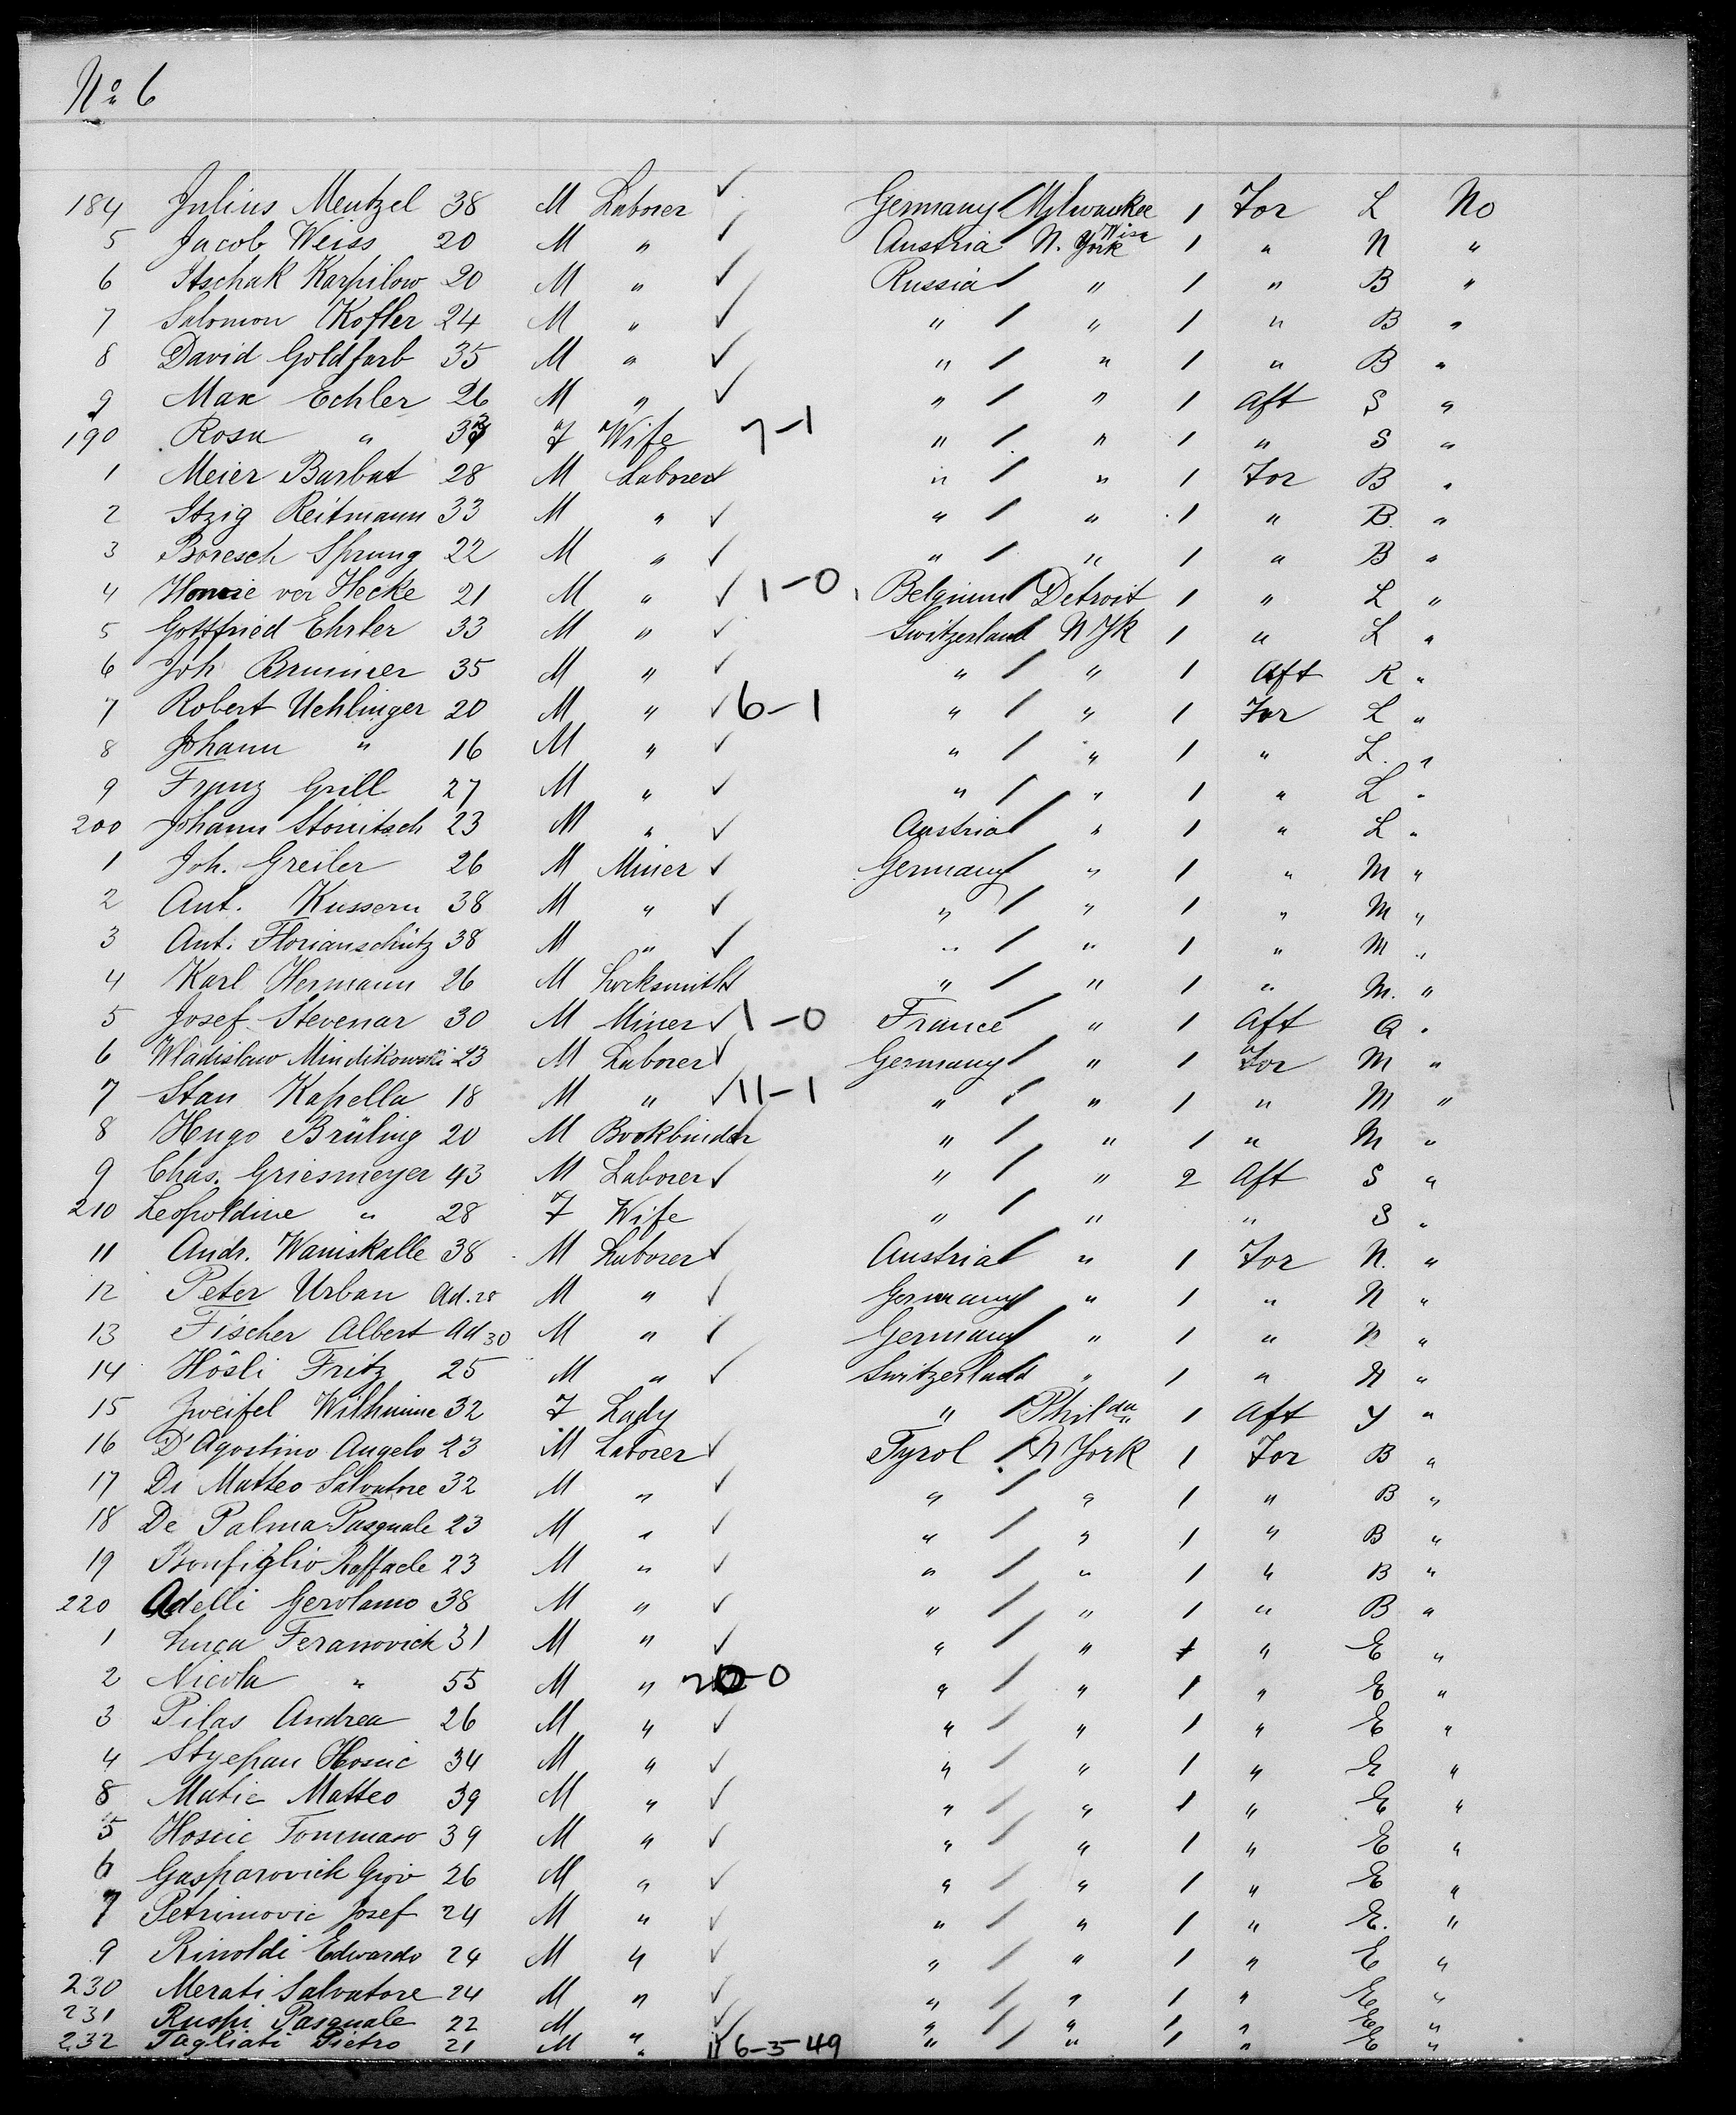 No 6
184 Julius Mentzel 38 M Laborer ✓ Germany / Milwaukee Wisc 1 For L No
5 Jacob Weiss 20 M " ✓ Austria N. York 1 " N "
6 Itschak Karpilow 20 M " ✓ Russia / " 1 " B "
7 Salomon Kofler 24 M " ✓ " / " 1 " B "
8 David Goldfarb 35 M " ✓ " / " 1 " B "
9 Max Echler 26 M " ✓ " / " 1 Aft S "
190 Rosa " F Wife 7-1 " / " 1 " S "
1 Meier Barbat 28 M Laborer ✓ " / " 1 For B "
2 Itzig Reitmann 33 M " ✓ " / " 1 " B. "
3 Boresch Sprung 22 M " ✓ " / " 1 " B "
4 ver Hecke 21 M " ✓ 1-0 Belgium / Detroit 1 " L "
5 Gottfried Ehrler 33 M " ✓ Switzerland N Yk 1 " L "
6 Joh Brunner 35 M " ✓ " / " 1 Aft R "
7 Robert Uehlinger 20 M " ✓ 6-1 " / " 1 For L "
8 Johann " 16 M " ✓ " / " 1 " L. "
9 Franz Grill 27 M " ✓ " / " 1 " L "
200 Johann Stonitsch 23 M " ✓ Austria / " 1 " L "
1 Joh. Greiler 26 M Miner ✓ Germany " 1 " M "
2 Ant. Kussern 38 M " ✓ " / " 1 " M "
3 Ant. Florianschütz 38 M " ✓ " / " 1 " M "
4 Karl Hermann 26 M Locksmith ✓ " / " 1 " M. "
5 Josef Stevenar 30 M Miner ✓ 1-0 France / " 1 Aft Q "
6 Wladislaw Mindikowski 23 M Laborer ✓ Germany / " 1 For M "
7 Stan Kapella 18 M " ✓ 11-1 " / " 1 " M "
8 Hugo Brüling 20 M Bookbinder " / " 1 " M "
9 Chas. Griesmeyer 43 M Laborer ✓ " / " 2 Aft S "
210 Leopoldine " 28 F Wife " / " " S "
11 Andr. Waniskalle 38 M Laborer ✓ Austria / " 1 For N. "
12 Peter Urban Ad. 28 M " ✓ Germany " 1 " N "
13 Fischer Albert Ad 30 M " ✓ Germany " 1 " N "
14 Hösli Fritz 25 M " ✓ Switzerland " 1 " N "
15 Zweifel Wilhmine 32 F Lady " / Philda 1 Aft Y "
16 D'Agostino Angelo 23 M Laborer ✓ Tyrol / N York 1 For B "
17 Di Matteo Salvatore 32 M " ✓ " / " 1 " B "
18 De Palma Pasquale 23 M " ✓ " / " 1 " B "
19 Bonfiglio Raffaele 23 M " ✓ " / " 1 " B "
220 Adelli Gerolamo 38 M " ✓ " / " 1 " B "
1 Luca Feranovich 31 M " ✓ " / " 1 " E "
2 Nicola " 55 M " " / " 1 " E "
3 Pilas Andrea 26 M " ✓ " / " 1 " E "
4 Styepan Hosnic 34 M " ✓ " / " 1 " E "
8 Matic Matteo 39 M " ✓ " / " 1 " E "
5 Hosnic Tommaso 39 M " ✓ " / " 1 " E "
6 Gasparovich 26 M " ✓ " / " 1 " E "
7 Petrinovic Josef 24 M " ✓ " / " 1 " E. "
9 Rinoldi Edwardo 24 M " ✓ " / " 1 " E "
230 Merati Salvatore 24 M " ✓ " / " 1 " E "
231 Ruspi Pasquale 22 M " ✓ " / " 1 " E "
232 Tagliati Pietro 21 M " 6-3-49 " / " 1 " E "